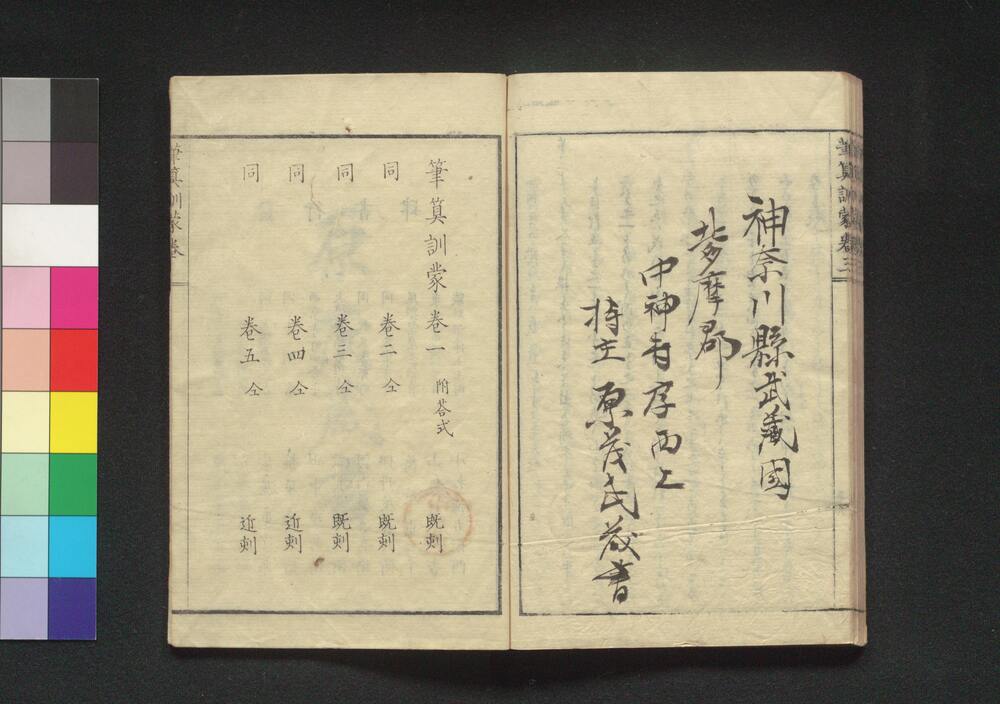 筆算訓蒙卷三
神奈川縣武蔵國
多摩郡
中神村字西上
持主 原茂氏蔵書
筆算訓蒙 卷一 附荅式 既刻
同 卷二 仝 既刻
同 卷三 仝 既刻
同 卷四 仝 近刻
同 卷五 仝 近刻
筆算訓蒙卷